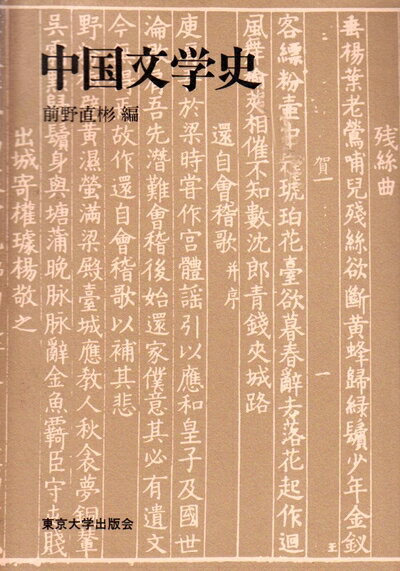 中国文学史
前野直彬 編
殘絲曲
垂楊葉老鶯哺兒殘絲欲斷黃蜂歸綠鬢少年金釵
賀一
一
至
客縹粉壺中沉琥珀花臺欲暮春辭去落花起作迴
風舞榆莢相催不知數沈郎青錢夾城路
還自會稽歌 并序
庾於梁時嘗作宮體謠引以應和皇子及國世
淪吾先潛難會稽後始還家僕意其必有遺文
今故作還自會稽歌以補其悲
野粉黃濕螢滿梁殿臺城應教人秋衾夢銅輦
吳霜鬢身與塘蒲晚脉脉辭金魚羈臣守迍賤
出城寄權璩楊敬之
東京大学出版会